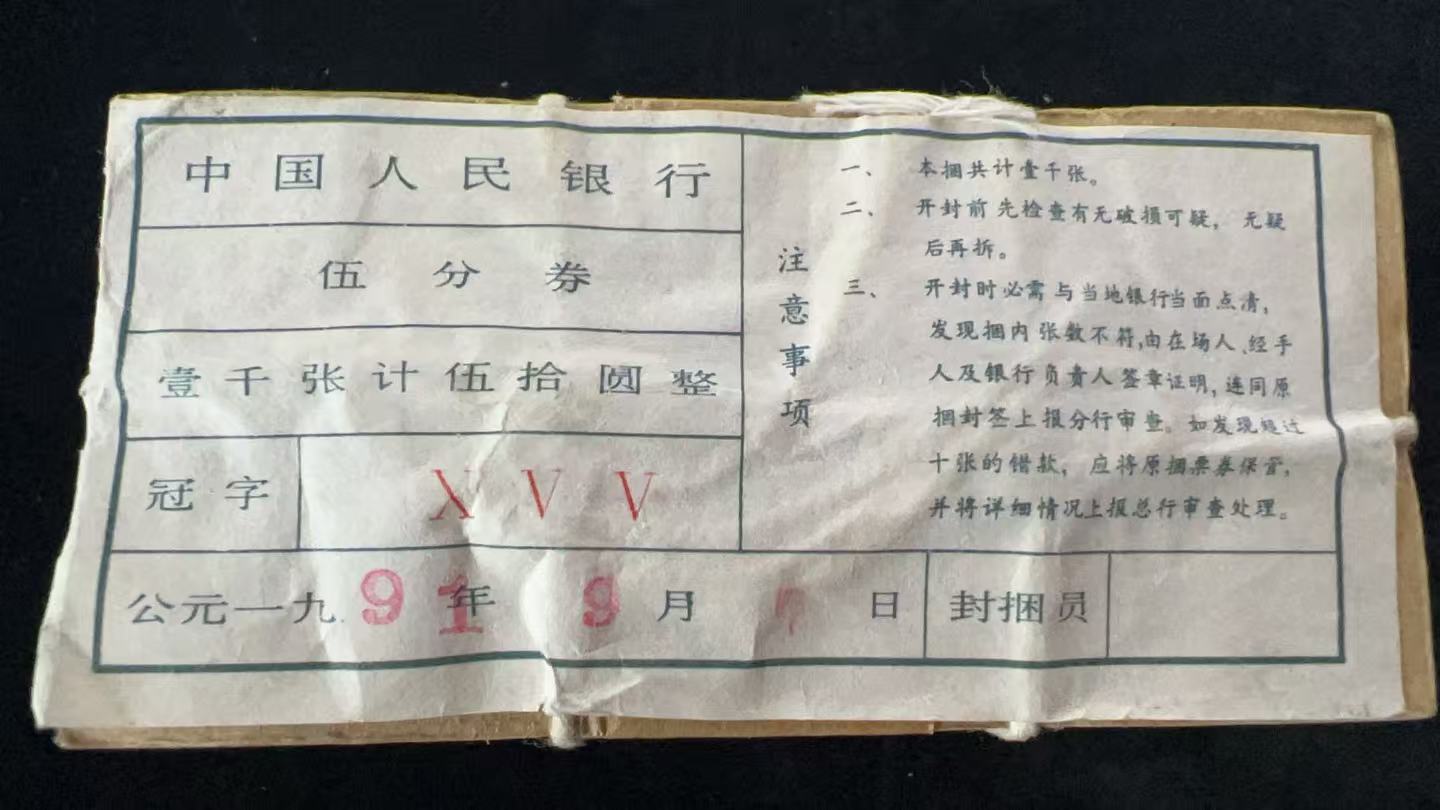 中国人民银行
伍分券
壹千张计伍拾圆整
冠字 XVV
公元一九91年9月 日 封捆员
注意事项
一、 本捆共计壹千张。
二、 开封前先检查有无破损可疑， 无疑
后再拆。
三、 开封时必需与当地银行当面点清，
发现捆内张数不符，由在场人、经手
人及银行负责人签章证明，连同原
捆封签上报分行审查。如发现短过
十张的错款， 应将原捆票券保管，
并将详细情况上报总行审查处理。